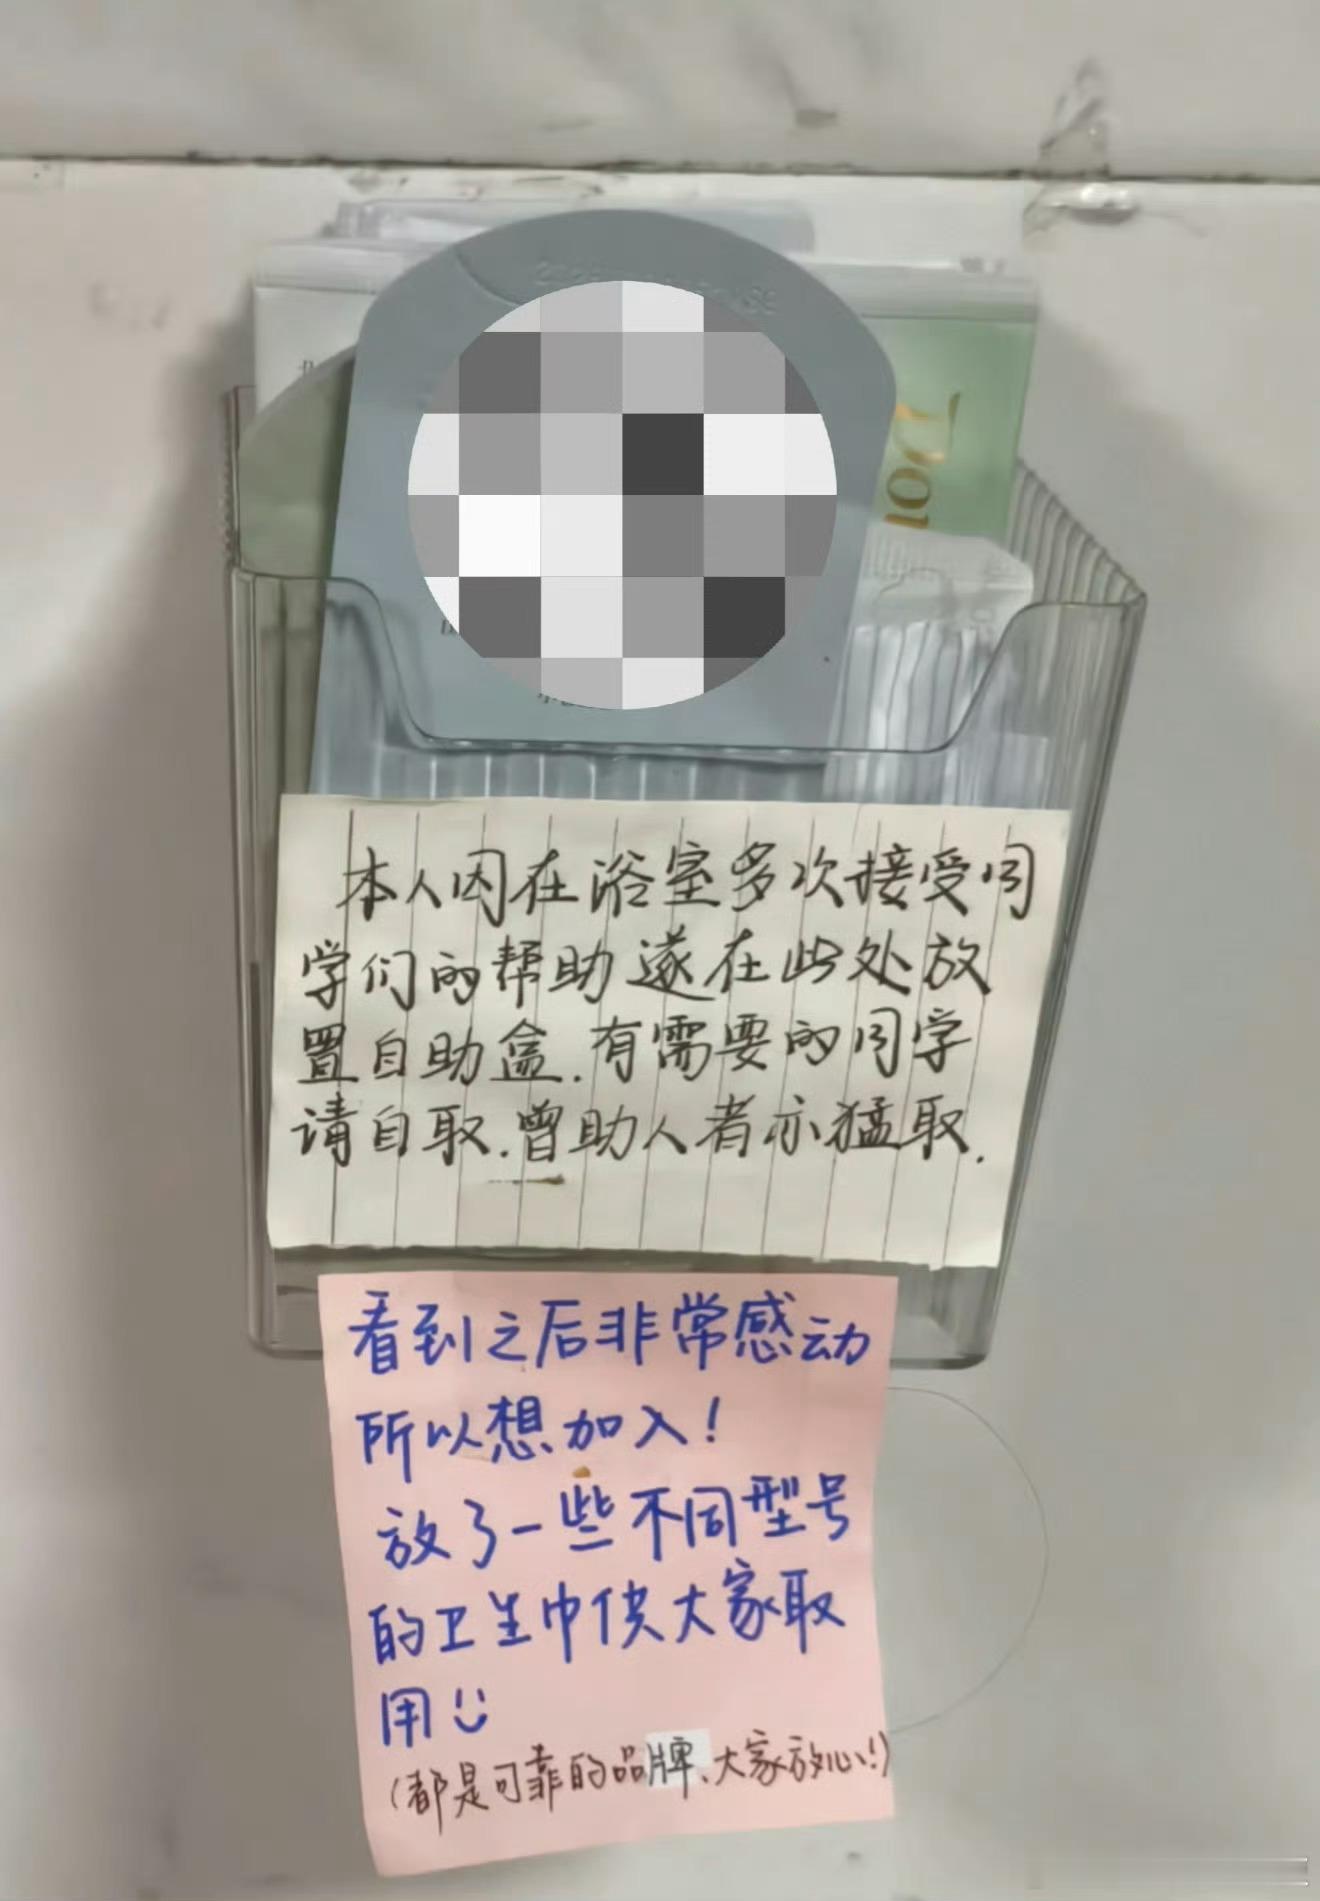 本人因在浴室多次接受同
学们的帮助遂在此处放
置自助盒.有需要的同学
请自取.曾助人者亦猛取.
看到之后非常感动
所以想加入!
放了一些不同型号
的卫生巾供大家取
用
(都是可靠的品牌、大家放心!)